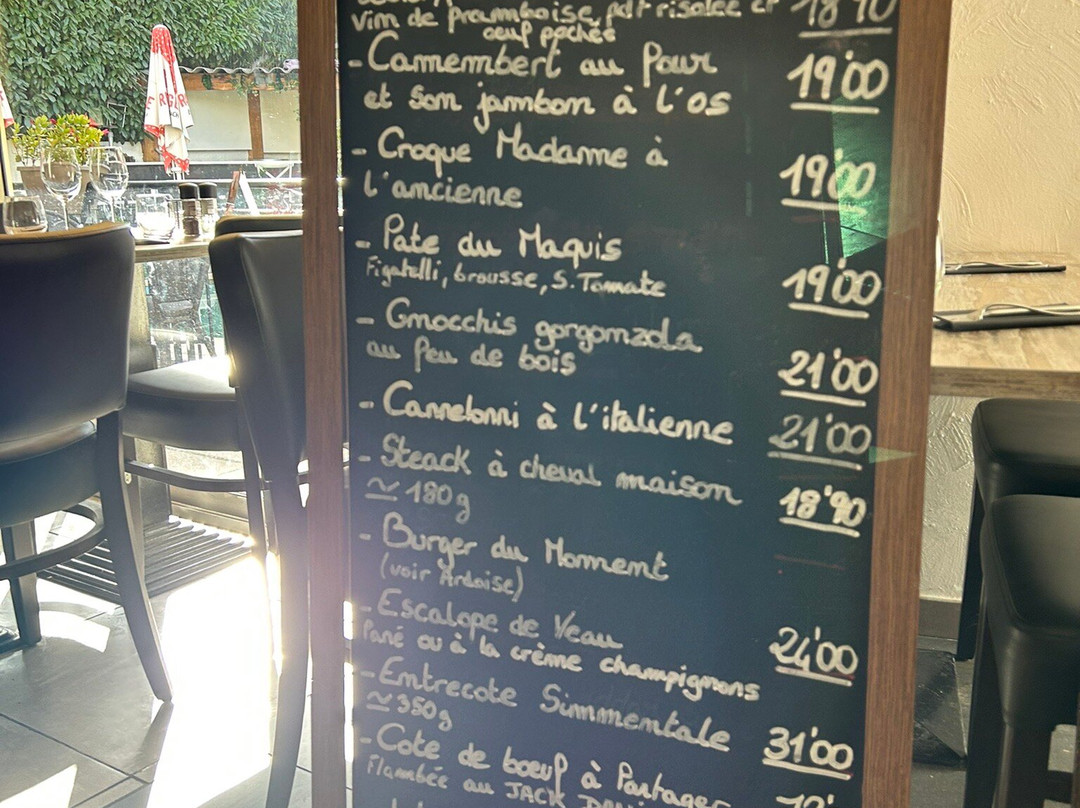 vin de framboise, pdt risolée et 18'90
oeuf pochée
- Camembert au Four
et son jambon à l'os 19'00
- Croque Madame à
l'ancienne 19'00
- Pate du Maquis
Figatelli, brousse, S. Tomate 19'00
- Gnocchis gorgonzola
au feu de bois 21'00
- Cannelonni à l'italienne 21'00
- Steack à cheval maison
≃ 180g 18'90
- Burger du Moment
(voir Ardoise)
- Escalope de Veau
Pané ou à la crème champignons 24'00
- Entrecote Simmentale
≃ 350g 31'00
- Cote de boeuf à Partager
Flambée au JACK